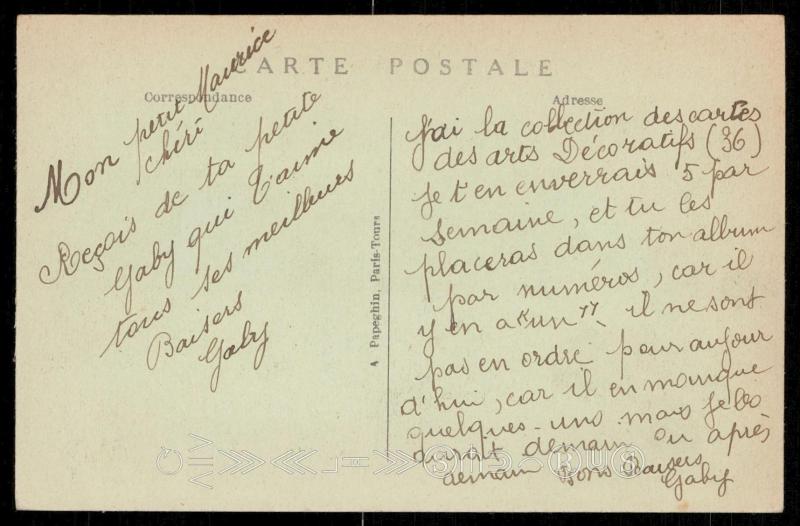 CARTE POSTALE
Correspondance
Adresse
Mon petit Maurice
chéri
Reçois de ta petite
Gaby qui t'aime
tous ses meilleurs
Baisers
Gaby
A Papeghin, Paris-Tours
J'ai la collection des cartes
des arts Décoratifs (36)
je t'en enverrais 5 par
semaine, et tu les
placeras dans ton album
par numéros, car il
y en a "un". il ne sont
pas en ordre pour aujour
d'hui, car il en manque
quelques-uns mais je les
aurait demain ou après
demain Bons Baisers
Gaby